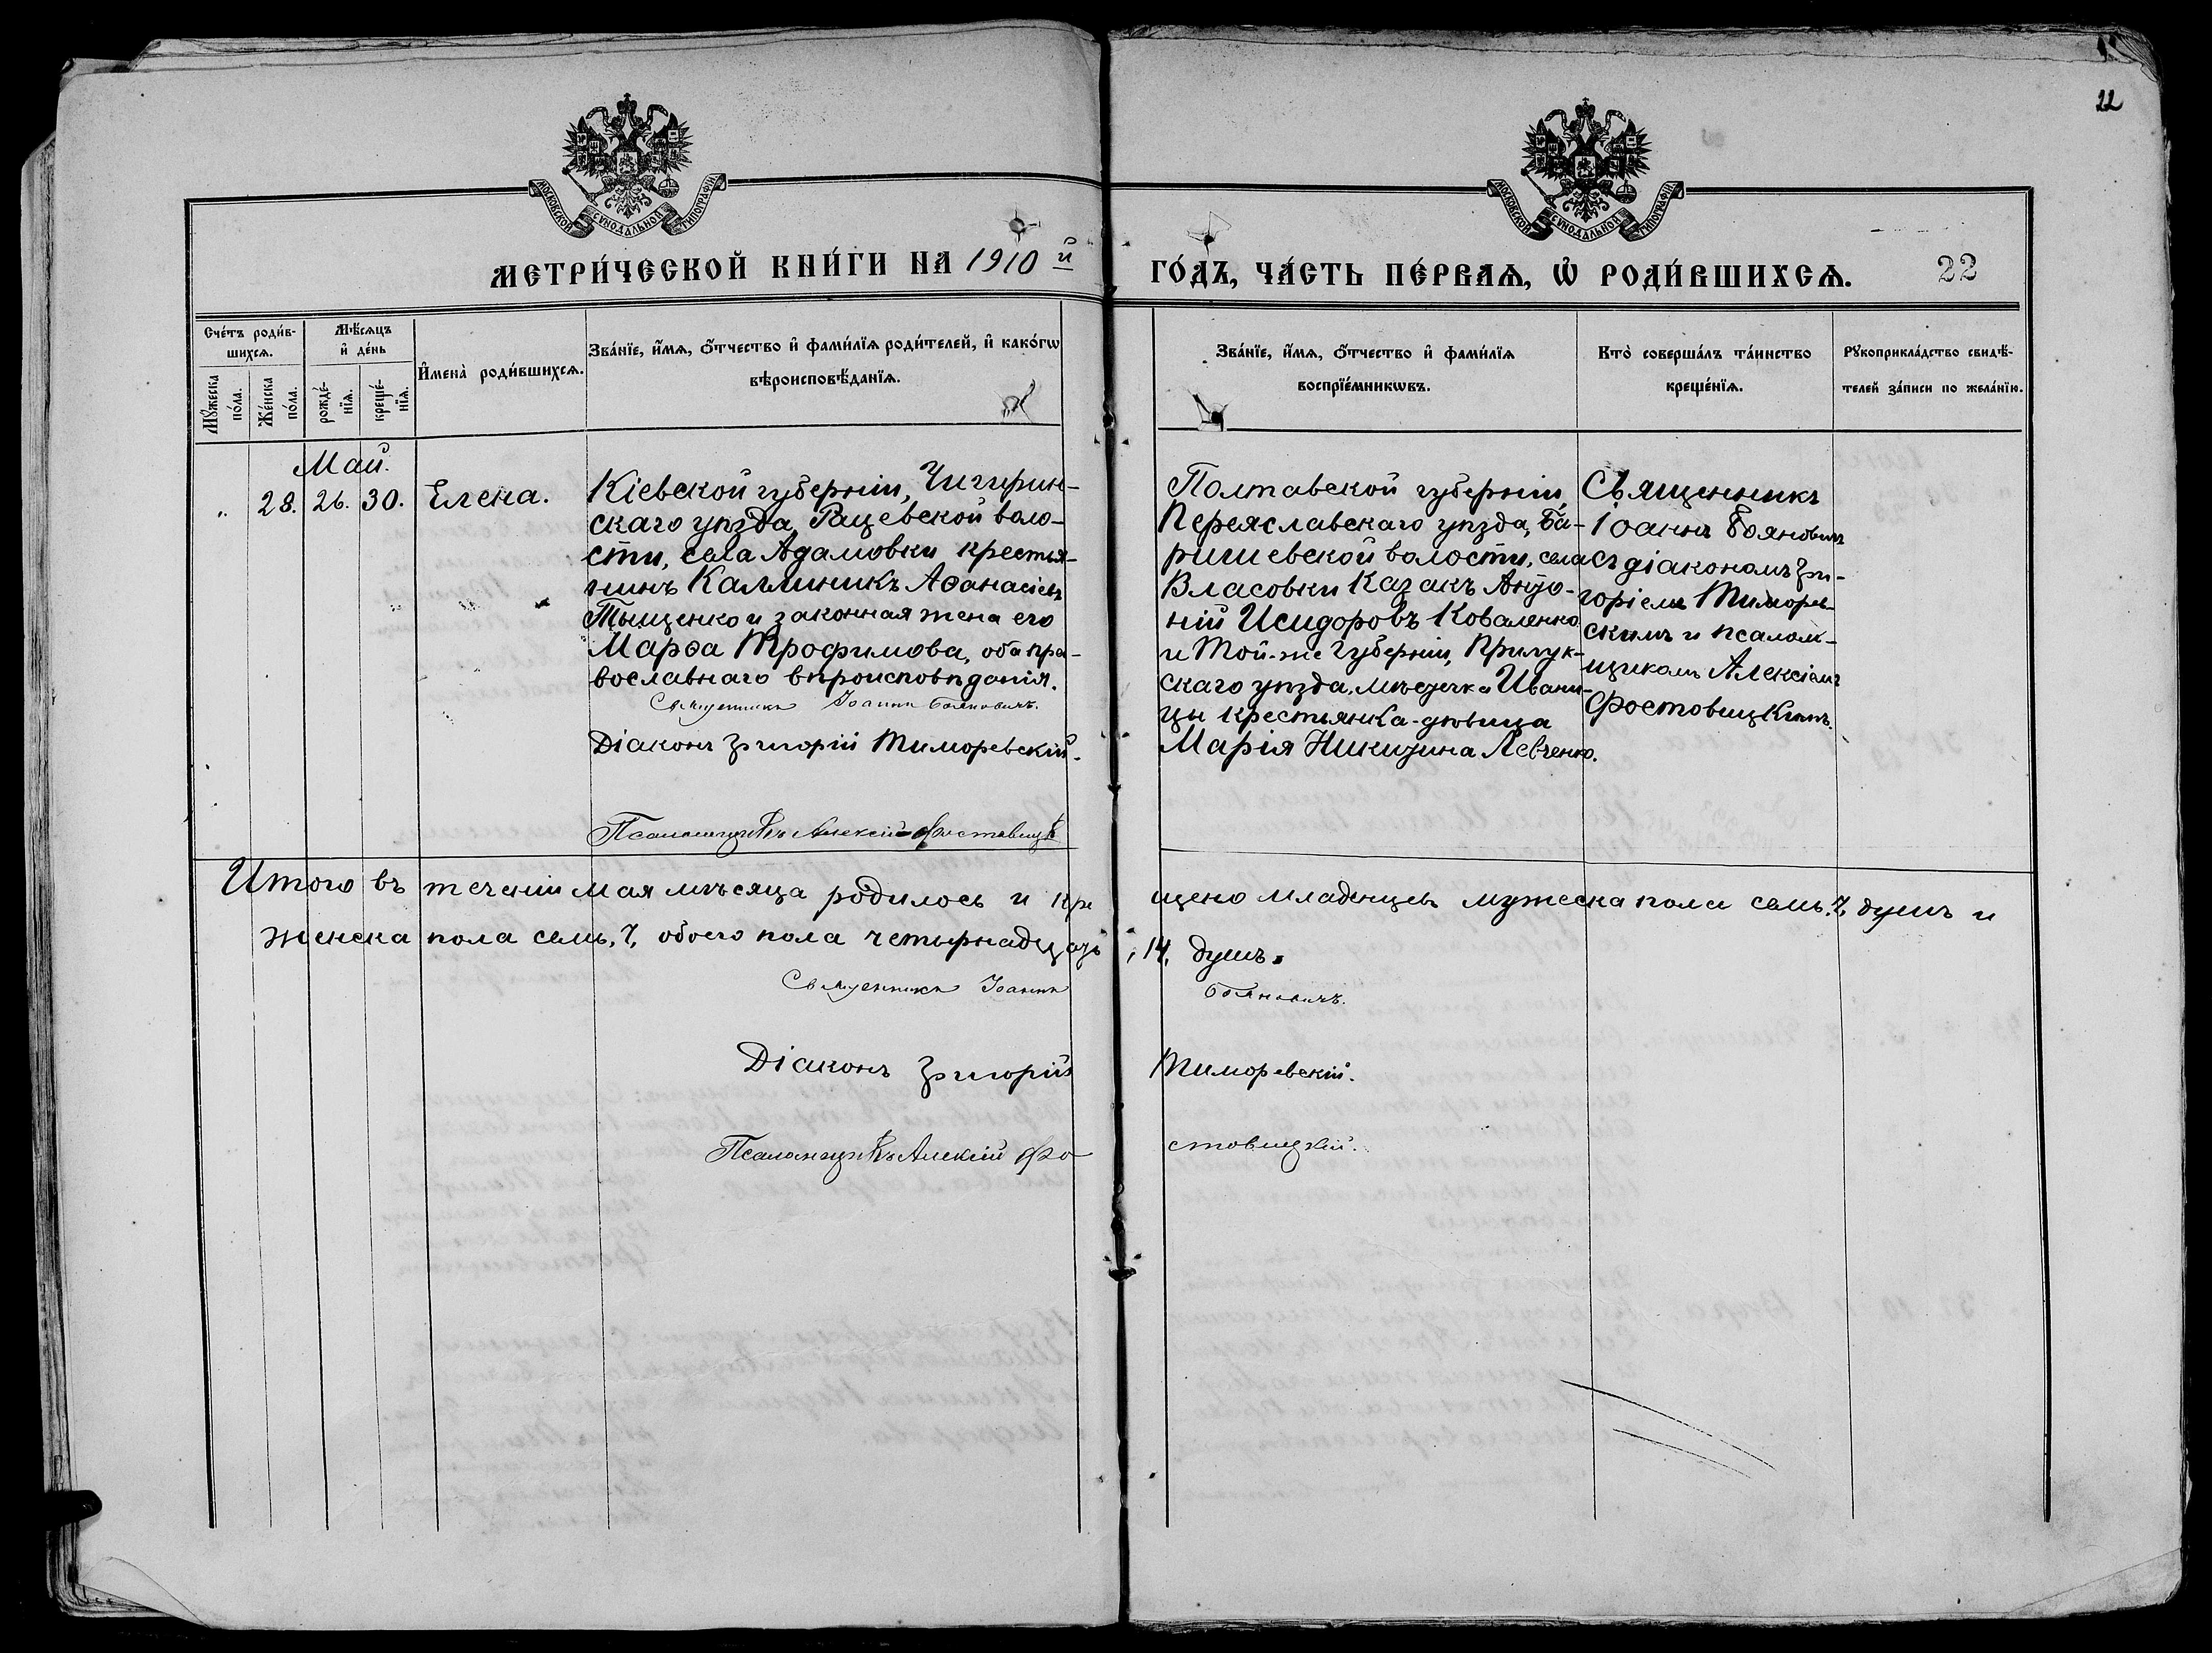 22
МОСКОВСКОЙ СѴНОДАЛЬНОЙ ТИПОГРАФІИ
МОСКОВСКОЙ СѴНОДАЛЬНОЙ ТИПОГРАФІИ
МЕТРИ́ЧЕСКОЙ КНИ́ГИ НА 1910й
ГО́ДЪ, ЧА́СТЬ ПЕ́РВАѦ, Ѡ҆ РОДИ́ВШИХСѦ. 22
Сче́тъ роди́в-
шихсѧ.
Мꙋ́жеска
по́ла.
Же́нска
по́ла.
Мѣ́сѧцъ
и҆ де́нь
рожде́-
нїѧ.
креще́-
нїѧ.
И҆мена̀ роди́вшихсѧ.
Зва́нїе, и҆́мѧ, ѻ҆́тчество и҆ фами́лїѧ роди́телей, и҆ како́гѡ
вѣроисповѣ́данїѧ.
Зва́нїе, и҆́мѧ, ѻ҆́тчество и҆ фами́лїѧ
воспрїе́мникѡвъ.
Кто̀ соверша́лъ та́инство
креще́нїѧ.
Рꙋкоприкла́дство свидѣ́-
телей за́писи по жела́нїю.
Май.
" 28. 26. 30. Елена.
Кіевской губерніи, Чигирин-
скаго уѣзда, Рацевской воло-
сти, села Адамовки крестья-
нинъ Каллиникъ Аѳанасіевъ
Тыщенко и законная жена его
Марѳа Трофимова, оба пра-
вославнаго вѣроисповѣданія.
Священникъ Іоаннъ Бояновичъ.
Діаконъ Григорій Тиморевскій.
Псаломщикъ Алексій Фостовицк
Полтавской губерніи,
Переяславскаго уѣзда, Ба-
ришевской волости, села
Власовки Казакъ Анто-
ній Исидоровъ Коваленко
и Той-же Губерніи, Прилук-
скаго уѣзда, мѣстечка Ивани-
цы крестьянка-дѣвица
Марія Никитина Левченко.
Священникъ
Іоаннъ Бояновичъ
съ діакономъ Гри-
горіемъ Тиморев-
скимъ и псалом-
щикомъ Алексіемъ
Фостовицкимъ.
Итого въ теченіи мая мѣсяца родилось и кре щено младенцевъ мужеска пола семь, 7, душъ и
женска пола семь, 7, обоего пола четырнадцать, 14, душъ.
Священникъ Іоаннъ Бояновичъ.
Діаконъ Григорій Тиморевскій.
Псаломщикъ Алексій Фо стовицкій.